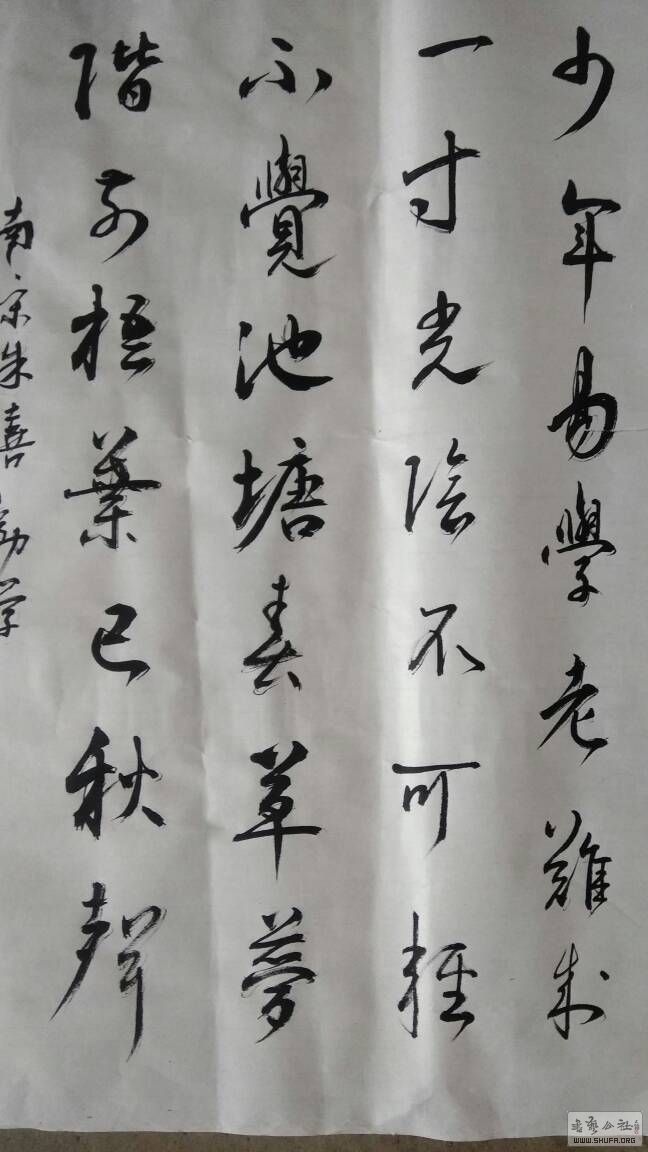 少年易學老難成
一寸光陰不可輕
不覺池塘春草夢
階前梧葉已秋聲
南宋朱喜勸学
書艺公社
WWW.SHUFA.ORG